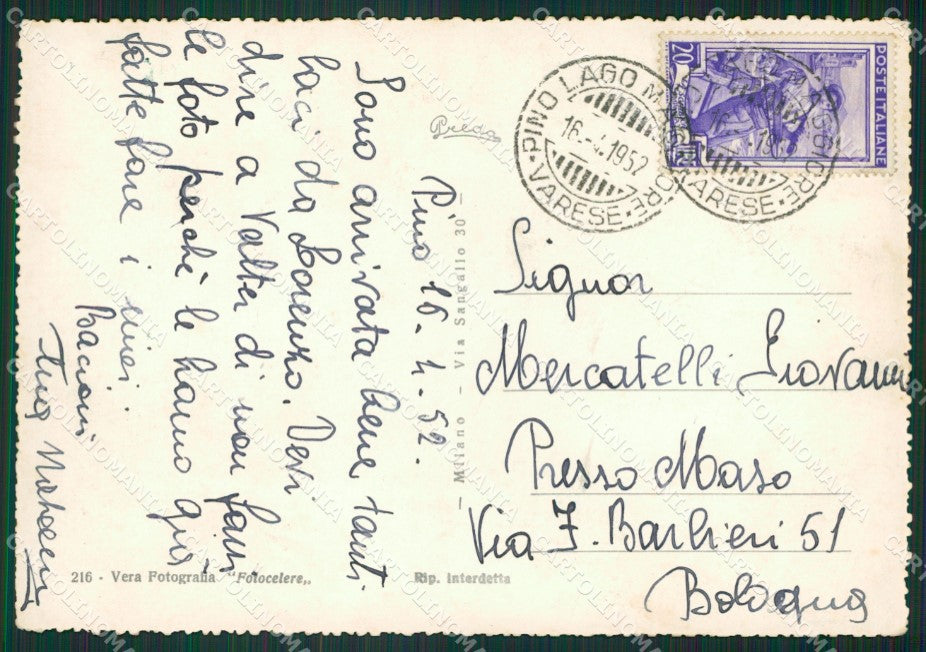 Pino 16.4.52.
Sono arrivata bene, tanti
baci da Lorenzo. Devi
dire a Valter di non farsi
le foto perché le hanno già
fatte fare i miei.
Bacioni
Preda
Signor
Mercatelli Giovanni
Presso Maso
Via F. Barbieri 51
Bologna
POSTE ITALIANE
20
PINO LAGO MAGGIORE
16.-4.1952
VARESE
MAGGIORE
VARESE
- Milano - Via Sangallo 30 -
216 - Vera Fotografia "Fotocelere„
Rip. Interdetta
CARTOLINOMANIA